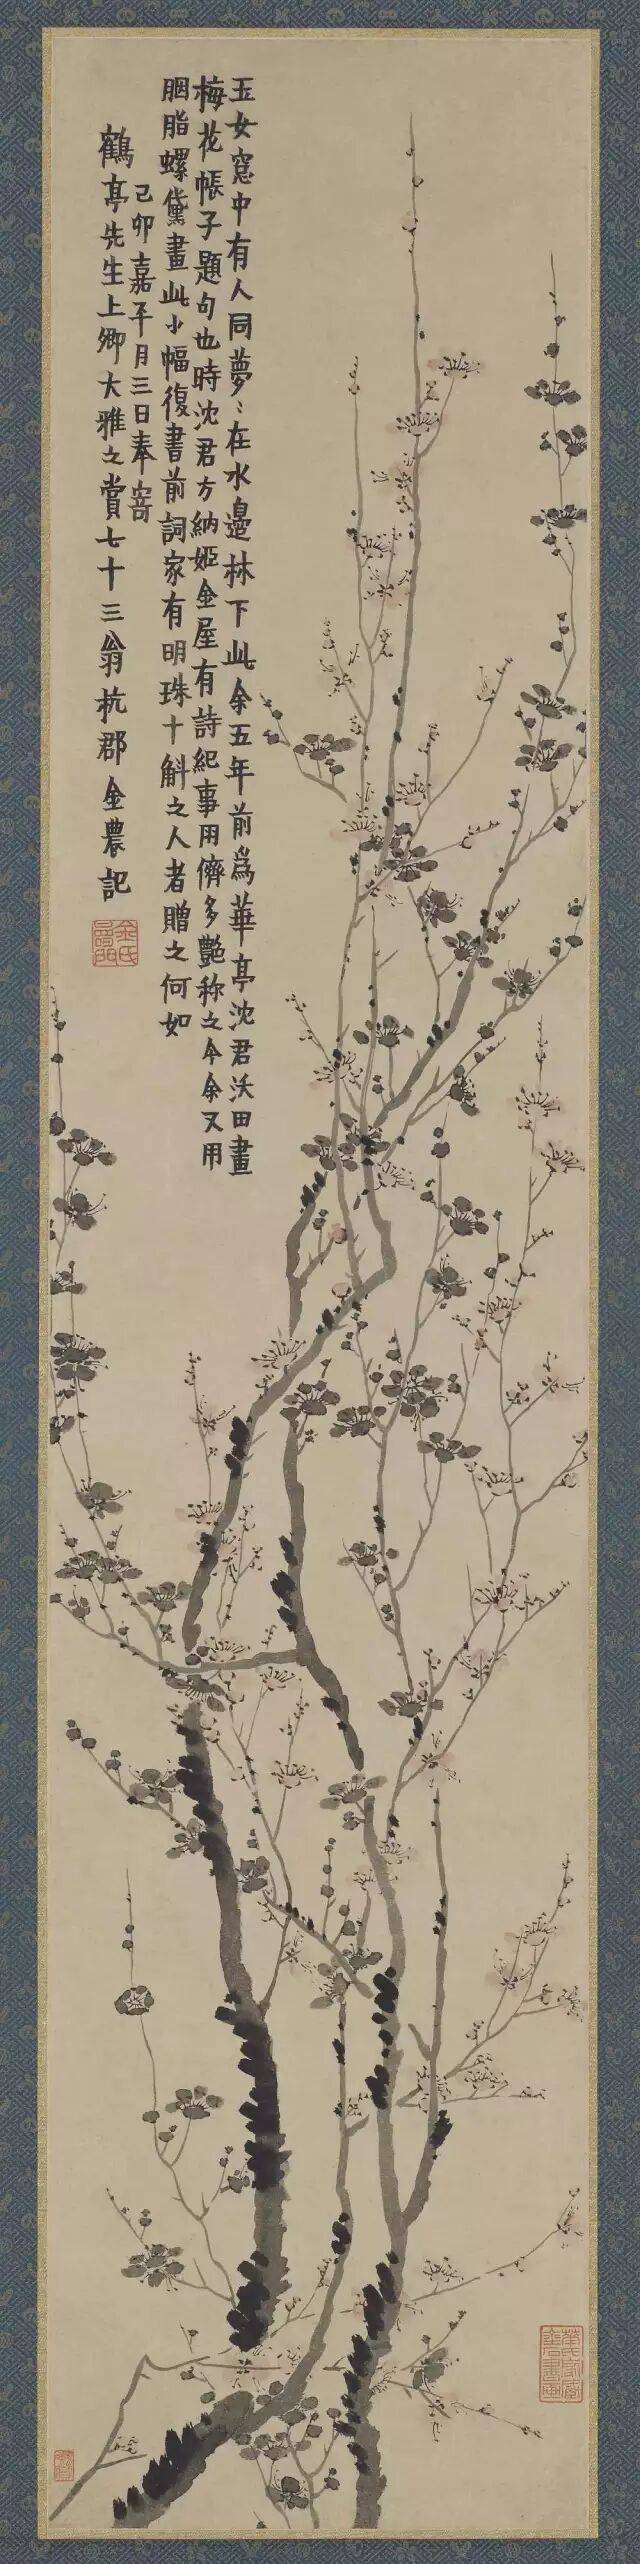 玉女窓中有人同夢〻在水邊林下此余五年前爲華亭沈君沃田畫
梅花帳子題句也時沈君方納姬金屋有詩紀事用儕多艷称之今余又用
胭脂螺黛畫此小幅復書前詞家有明珠十斛之人者贈之何如
己卯嘉平月三日奉寄
鶴亭先生上卿大雅之賞七十三翁杭郡金農記
金氏